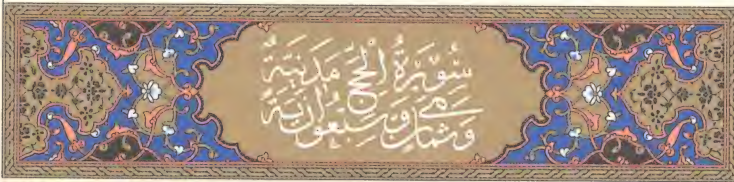 سُورَةُ الْحَجِّ مَدَنِيَّةٌ
وَثَمَانٍ وَسَبْعُونَ آيَةً